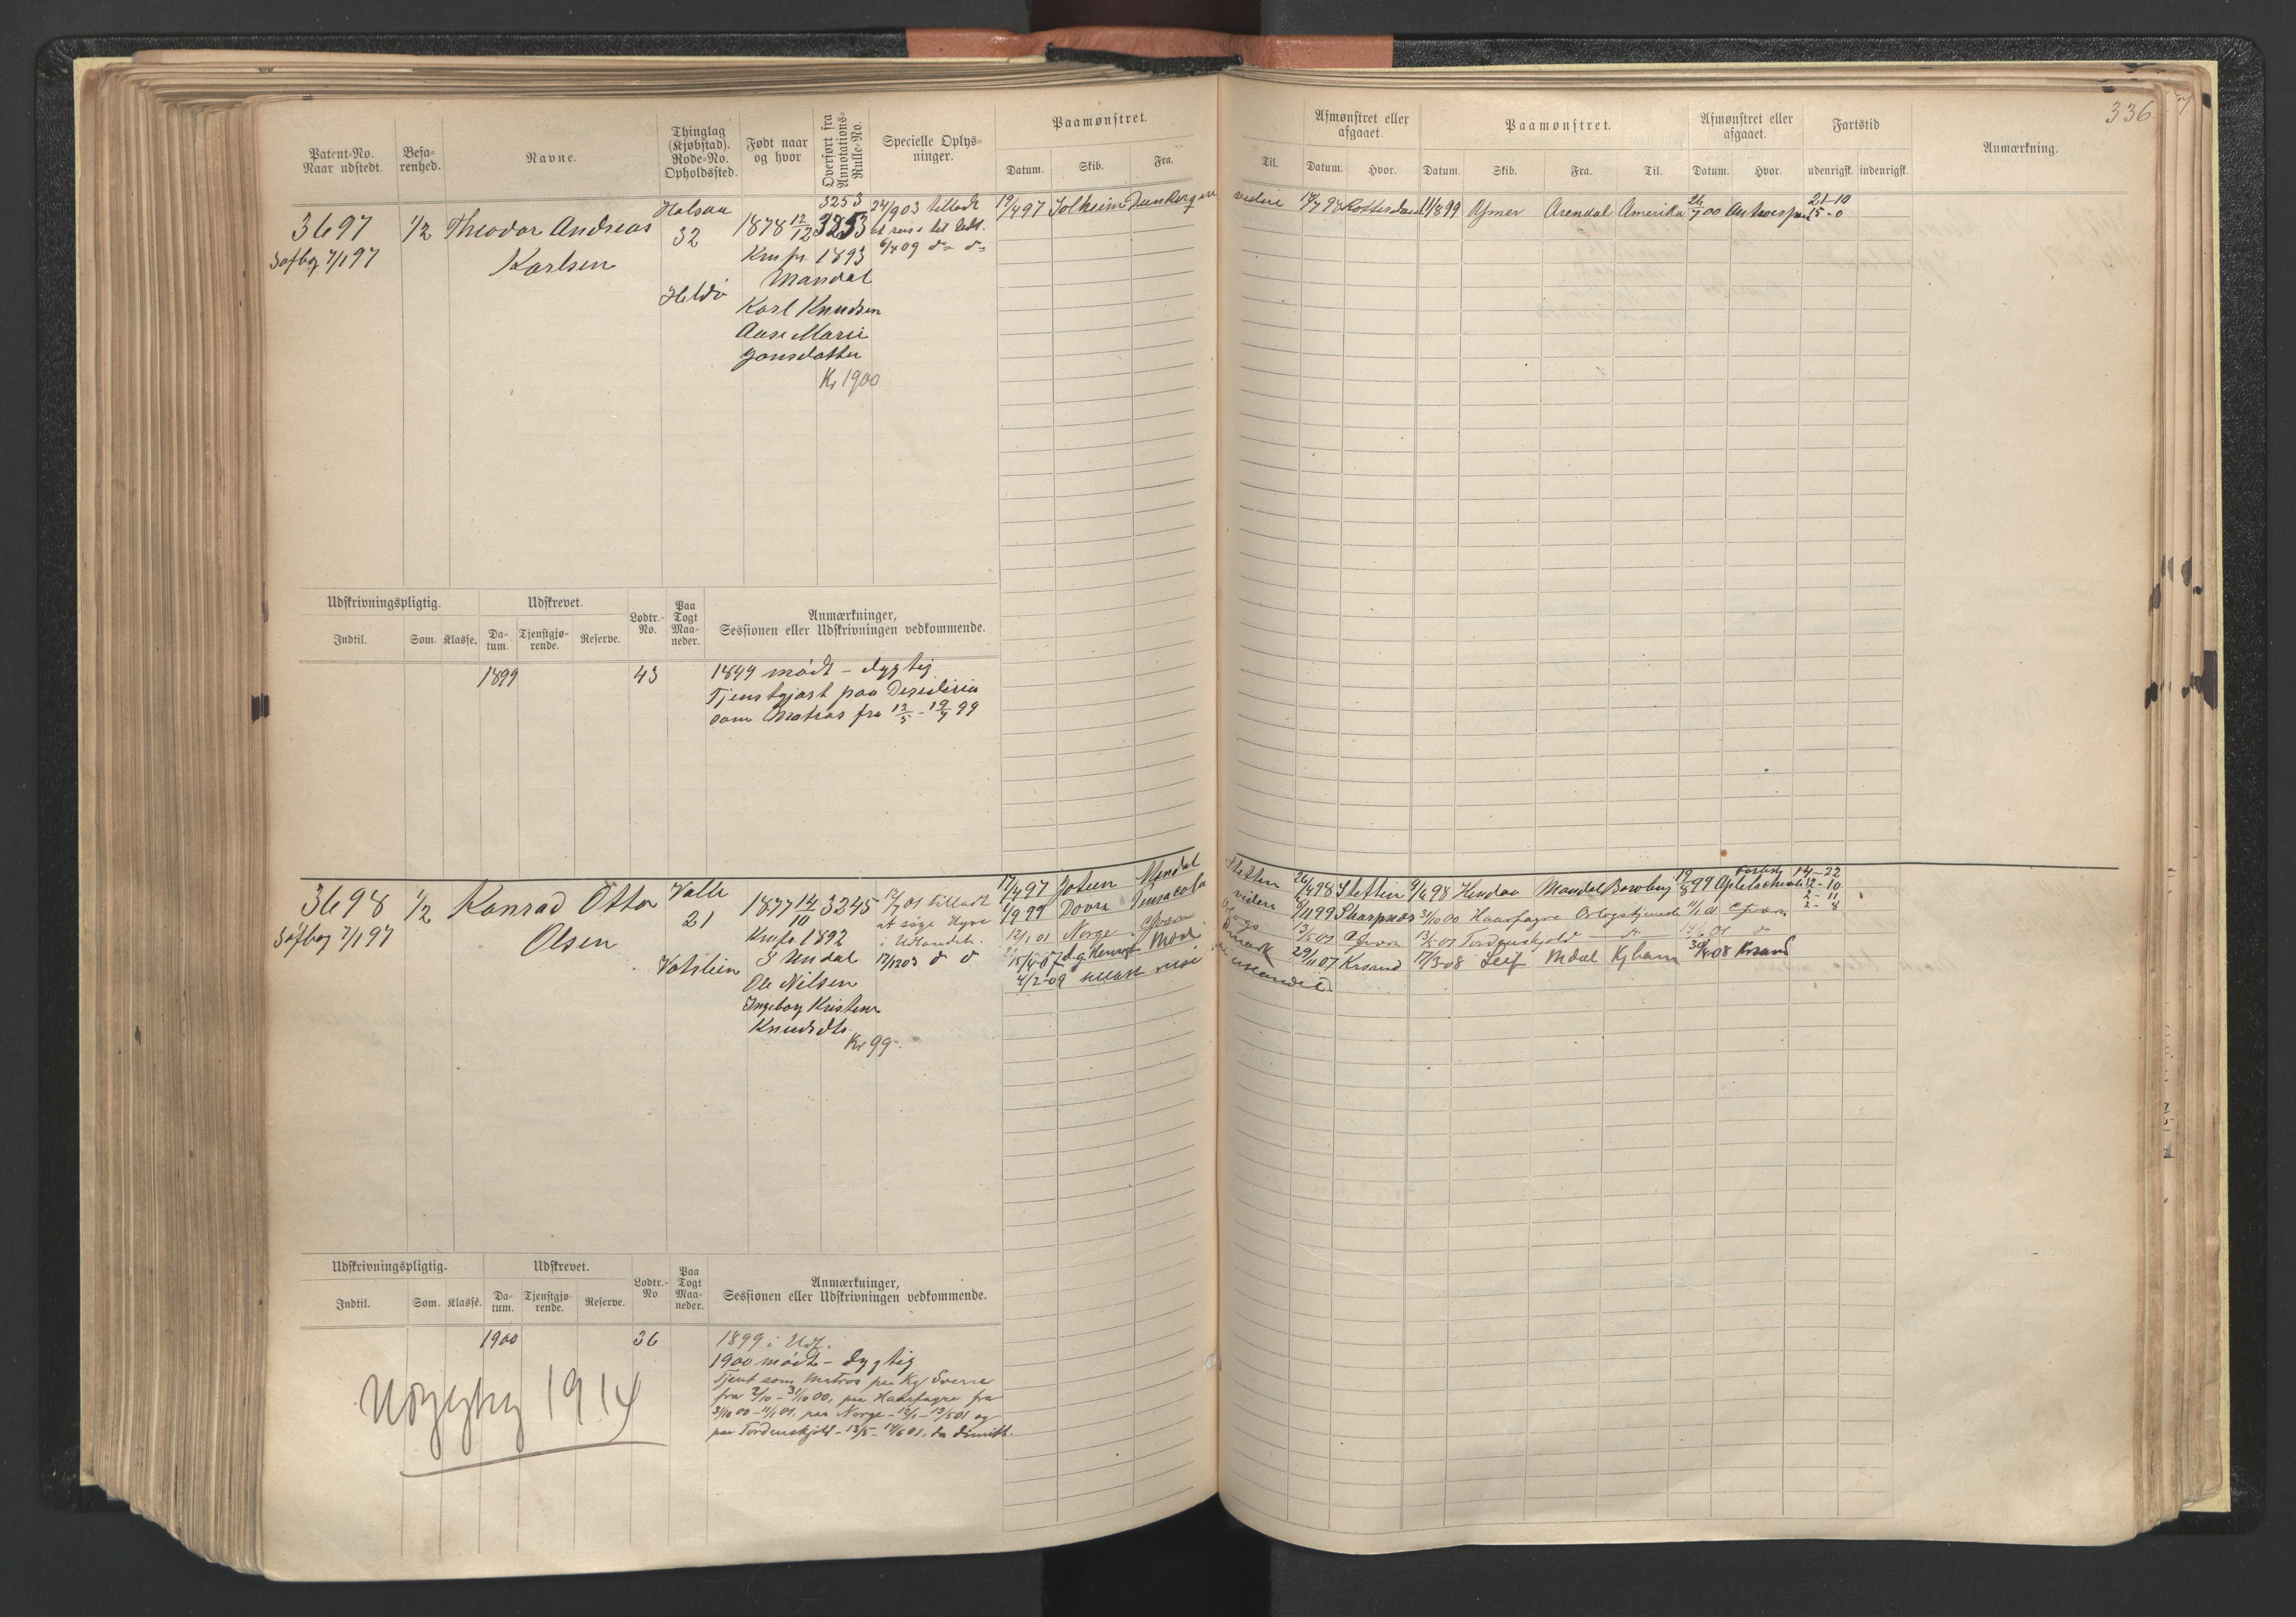 336
Patent-No. Naar udstedt.
Befa-renhed.
Navne.
Thinglag (Kjøbstad). Rode-No. Opholdssted.
Født naar og hvor
Overført fra Annotations-Rulle-No.
Specielle Oplys-ninger.
Paamønstret.
Datum. Skib. Fra. Til.
Afmønstret eller afgaaet.
Datum. Hvor.
Paamønstret.
Datum Skib. Fra. Til.
Afmønstret eller afgaaet.
Datum. Hvor.
Fartstid
udenrigsk. indenrigsk.
Anmærkning.
3697
Søfbog 7/1 97
1/2
Theodor Andreas
Karlsen
Halsaa
32
Heldø
1878 12/12
3253
3253
Krnfr. 1893
Mandal
Karl Knudsen
Aase Marie
Jonsdatter
Kr 1900
24/9 03 tilladt
6/4 09 do do
19/4 97 Solheim Dunkerque videre
Rotterdam 11/8 99
Arendal Amerika 26/7 00 Antwerpen
21-10
15-0
Udskrivningspligtig.
Indtil. Som. Klasse.
Udskrevet.
Da-tum. Tjenstgjø-rende. Reserve.
Lodtr.-No.
Paa Togt Maa-neder.
Anmærkninger,
Sessionen eller Udskrivningen vedkommende.
1899
43
1899 mødt - dygtig
Tjenstgjort paa
som Matros fra 12/5 - 19/7 99
3698
Søfbog 7/1 97
1/2
Konrad Otto
Olsen
Valle
21
Vatslein
1877 14/10 3245
Krnfr. 1892
S Undal
Ole Nilsen
Ingeborg Kristine
Knudsdtr.
Kr 99.
12/7 01 tilladt
at søge Hyre
i Udlandet.
12/12 03 do do
17/4 97 Jotun Mandal Stettin 26/4 98 Stettin 9/6 98 Hindoo Mandal 19/8 99
14-22
1/9 99 Dovre Pensacola videre 8/11 99 Sharpness 31/10 00 Haarfagre Orlogstjeneste 11/1 01
12-10
12/1 01 Norge 13/5 01 13/5 01 Tordenskjold do 14/6 01 do
2-11
2-8
29/11 07 Krsand 17/3 08 Leif Mdal Kjbhavn 30/4 08 Krsand
4/2-09 tilladt reise til udlandet
Udskrivningspligtig.
Indtil. Som. Klasse.
Udskrevet.
Da-tum. Tjenstgjø-rende. Reserve.
Lodtr.-No
Paa Togt Maa-neder.
Anmærkninger,
Sessionen eller Udskrivningen vedkommende.
1900
36
1899 i Udl.
1900 mødt - dygtig
Tjent som Matros paa Kg Sverre
fra 2/10 - 31/10 00, paa Haarfagre fra
31/10 00 - 11/1 01, paa Norge - 12/1 - 13/5 01 og
paa Tordenskjold - 13/5 - 14/6 01, da dimitt.
1914